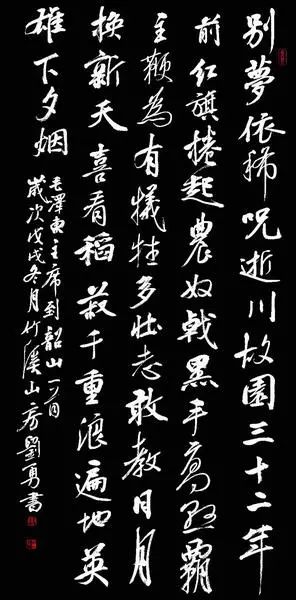 别夢依稀呪逝川故園三十二年
前红旗捲起農奴戟黑手高悬霸
主鞭為有犧牲多壮志敢教日月
换新天喜看稻菽千重浪遍地英
雄下夕烟
毛澤東主席到韶山一首
歲次戊戌冬月竹溪山房劉勇書